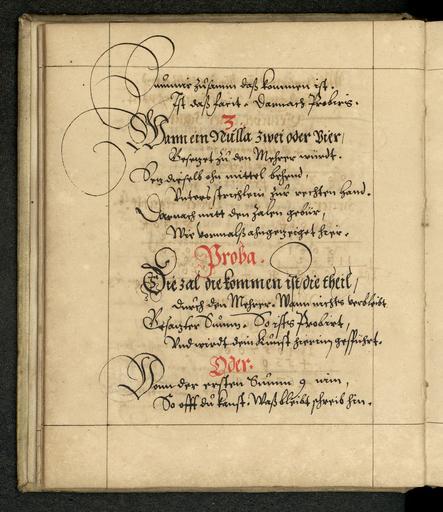 Summir zusamm daß kommen ist.
Ist daß facit. Darnach Probirs.
3.
Wann ein Nulla zwei oder Vier,
Gesezet zu den Mehrer würdt.
Sez dieselb ohn mittel behend,
Unters strichlein zur rechten hand.
Darnach mitt den zalen gebür,
Wie vormalß angezeiget hier.
Proba.
Die zal die kommen ist die theil,
durch den Mehrer. Wann nichts verbleibt
Gesanzter Summ. So ists Probirt,
Und wirdt dein Kunst hierin gespührt.
Oder.
Vonn der ersten Summ 9 nim,
So offt du kanst. Waß bleibt schreib hin.